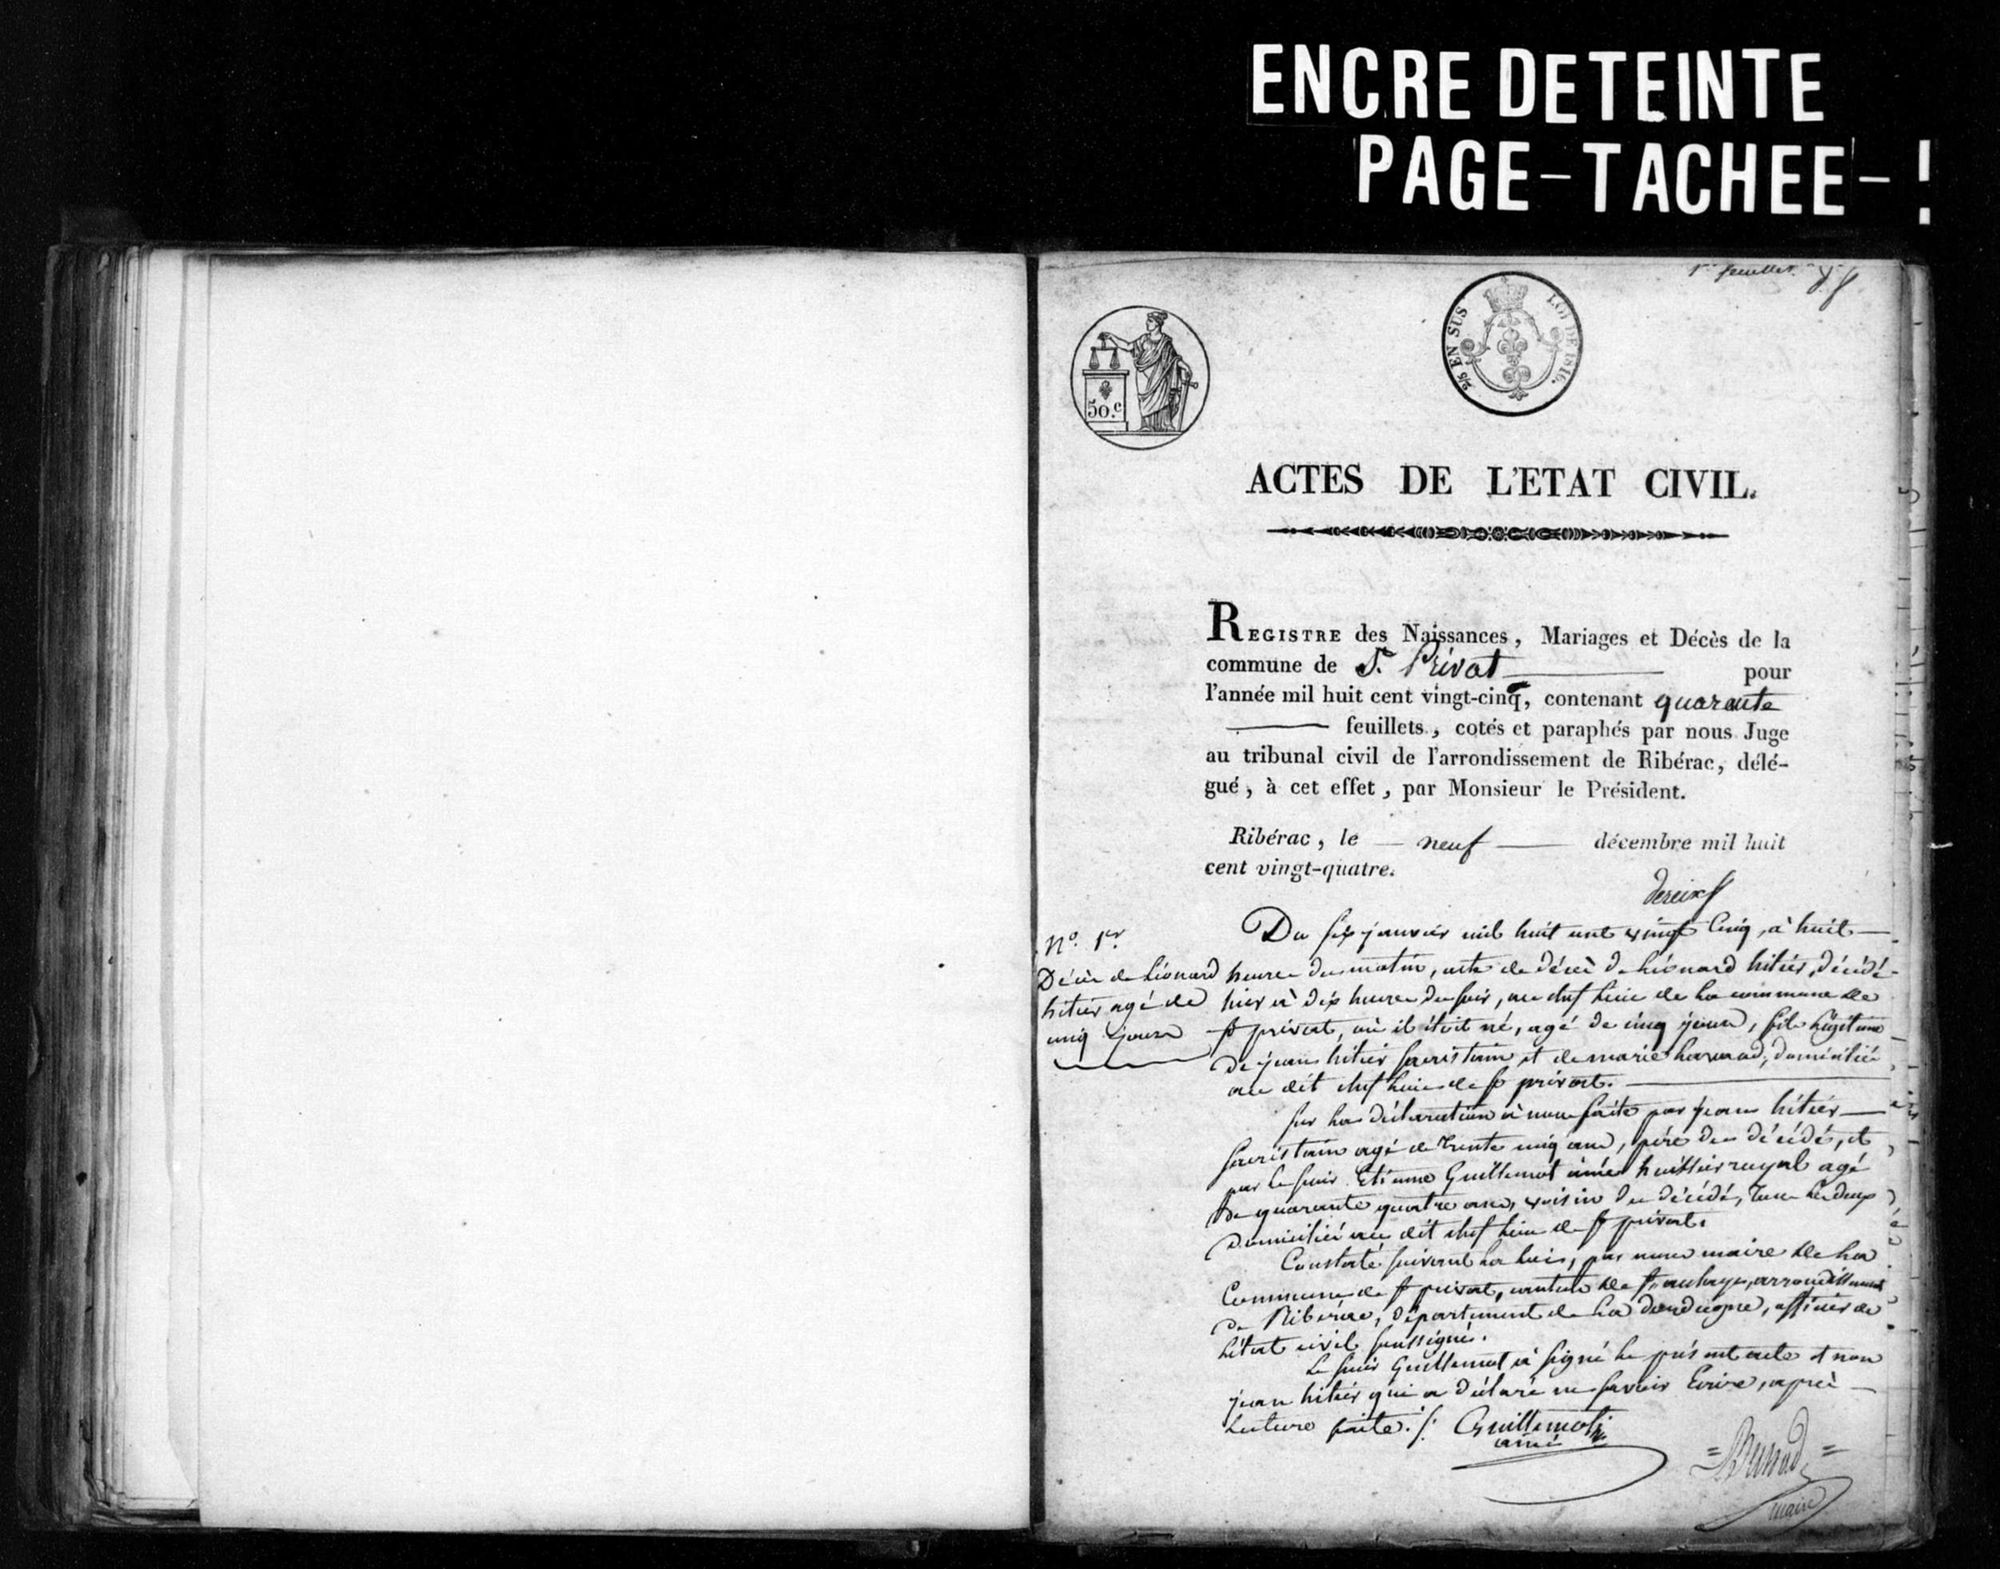 ENCRE DETEINTE
PAGE-TACHEE-!
1er feuillet.
50.c
2/5 EN SUS
LOI DE 1816.
ACTES DE L'ETAT CIVIL.
REGISTRE des Naissances, Mariages et Décès de la
commune de St. Privat pour
l'année mil huit cent vingt-cinq, contenant quarante
feuillets, cotés et paraphés par nous Juge
au tribunal civil de l'arrondissement de Ribérac, délé-
gué, à cet effet, par Monsieur le Président.
Ribérac, le neuf décembre mil huit
cent vingt-quatre.
dereix
No. 1er
Décès de Léonard
hitier agé de
cinq jours
Du six janvier mil huit cent vingt cinq, à huit
heures du matin, acte de décès de Léonard hitier, décédé
hier à dix heures du soir, au chef lieu de la commune de
st privat, où il étoit né, agé de cinq jours, fils légitime
de jean hitier sacristain et de marie, domiciliés
au dit chef lieu de st privat.
sur la déclaration à nous faite par jean hitier
sacristain agé de trente cinq ans, père du décédé, et
par le sieur Etienne Guillemot ainé huissier royal agé
de quarante quatre ans, voisin du décédé, tous les deux
domiciliés au dit chef lieu de st privat.
Constaté suivant la loi, par nous maire de la
Commune de st privat, canton de st aulaye, arrondissement
de Ribérac, département de la dordogne, officier de
l'état civil soussigné.
Le sieur Guillemot à signé le présent acte et non
jean hitier qui a déclaré ne savoir Ecrire, après
lecture faite.
Guillemot
ainé
maire